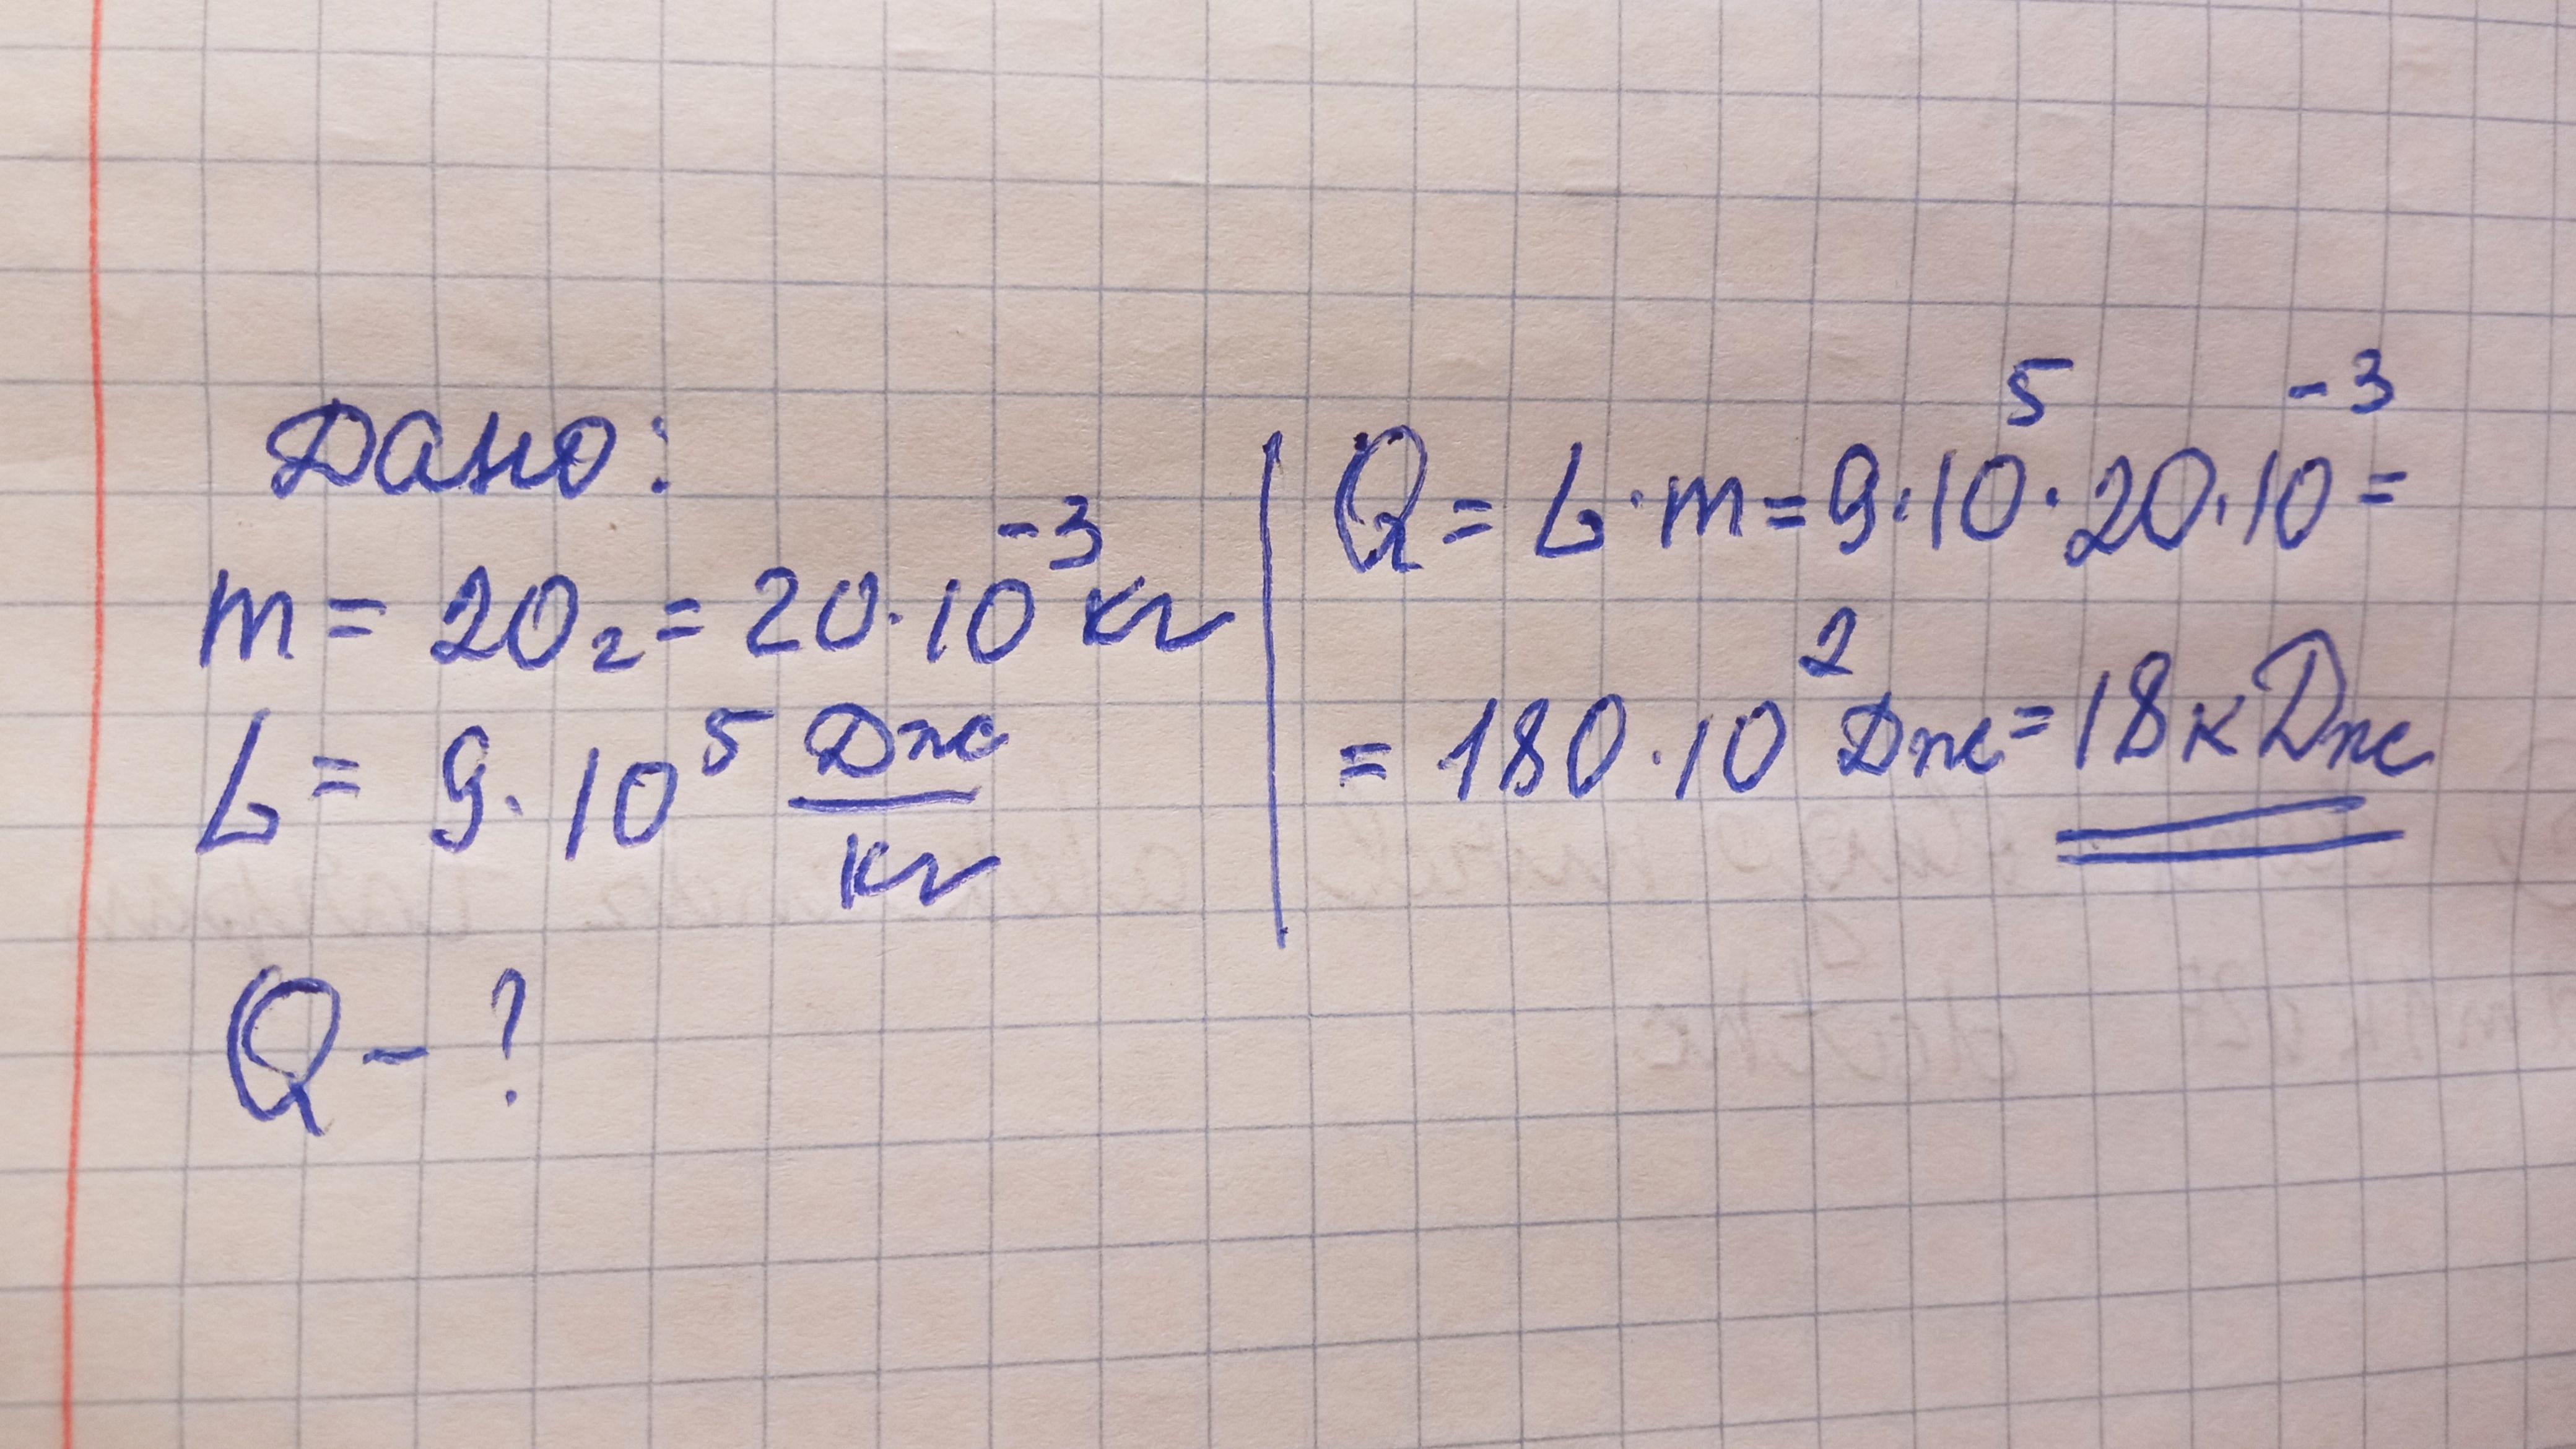 Дано:
m = 20г = 20·10⁻³ кг
L = 9·10⁵ Дж/кг
Q - ?
Q = L·m = 9·10⁵·20·10⁻³ =
= 180·10² Дж = 18 кДж